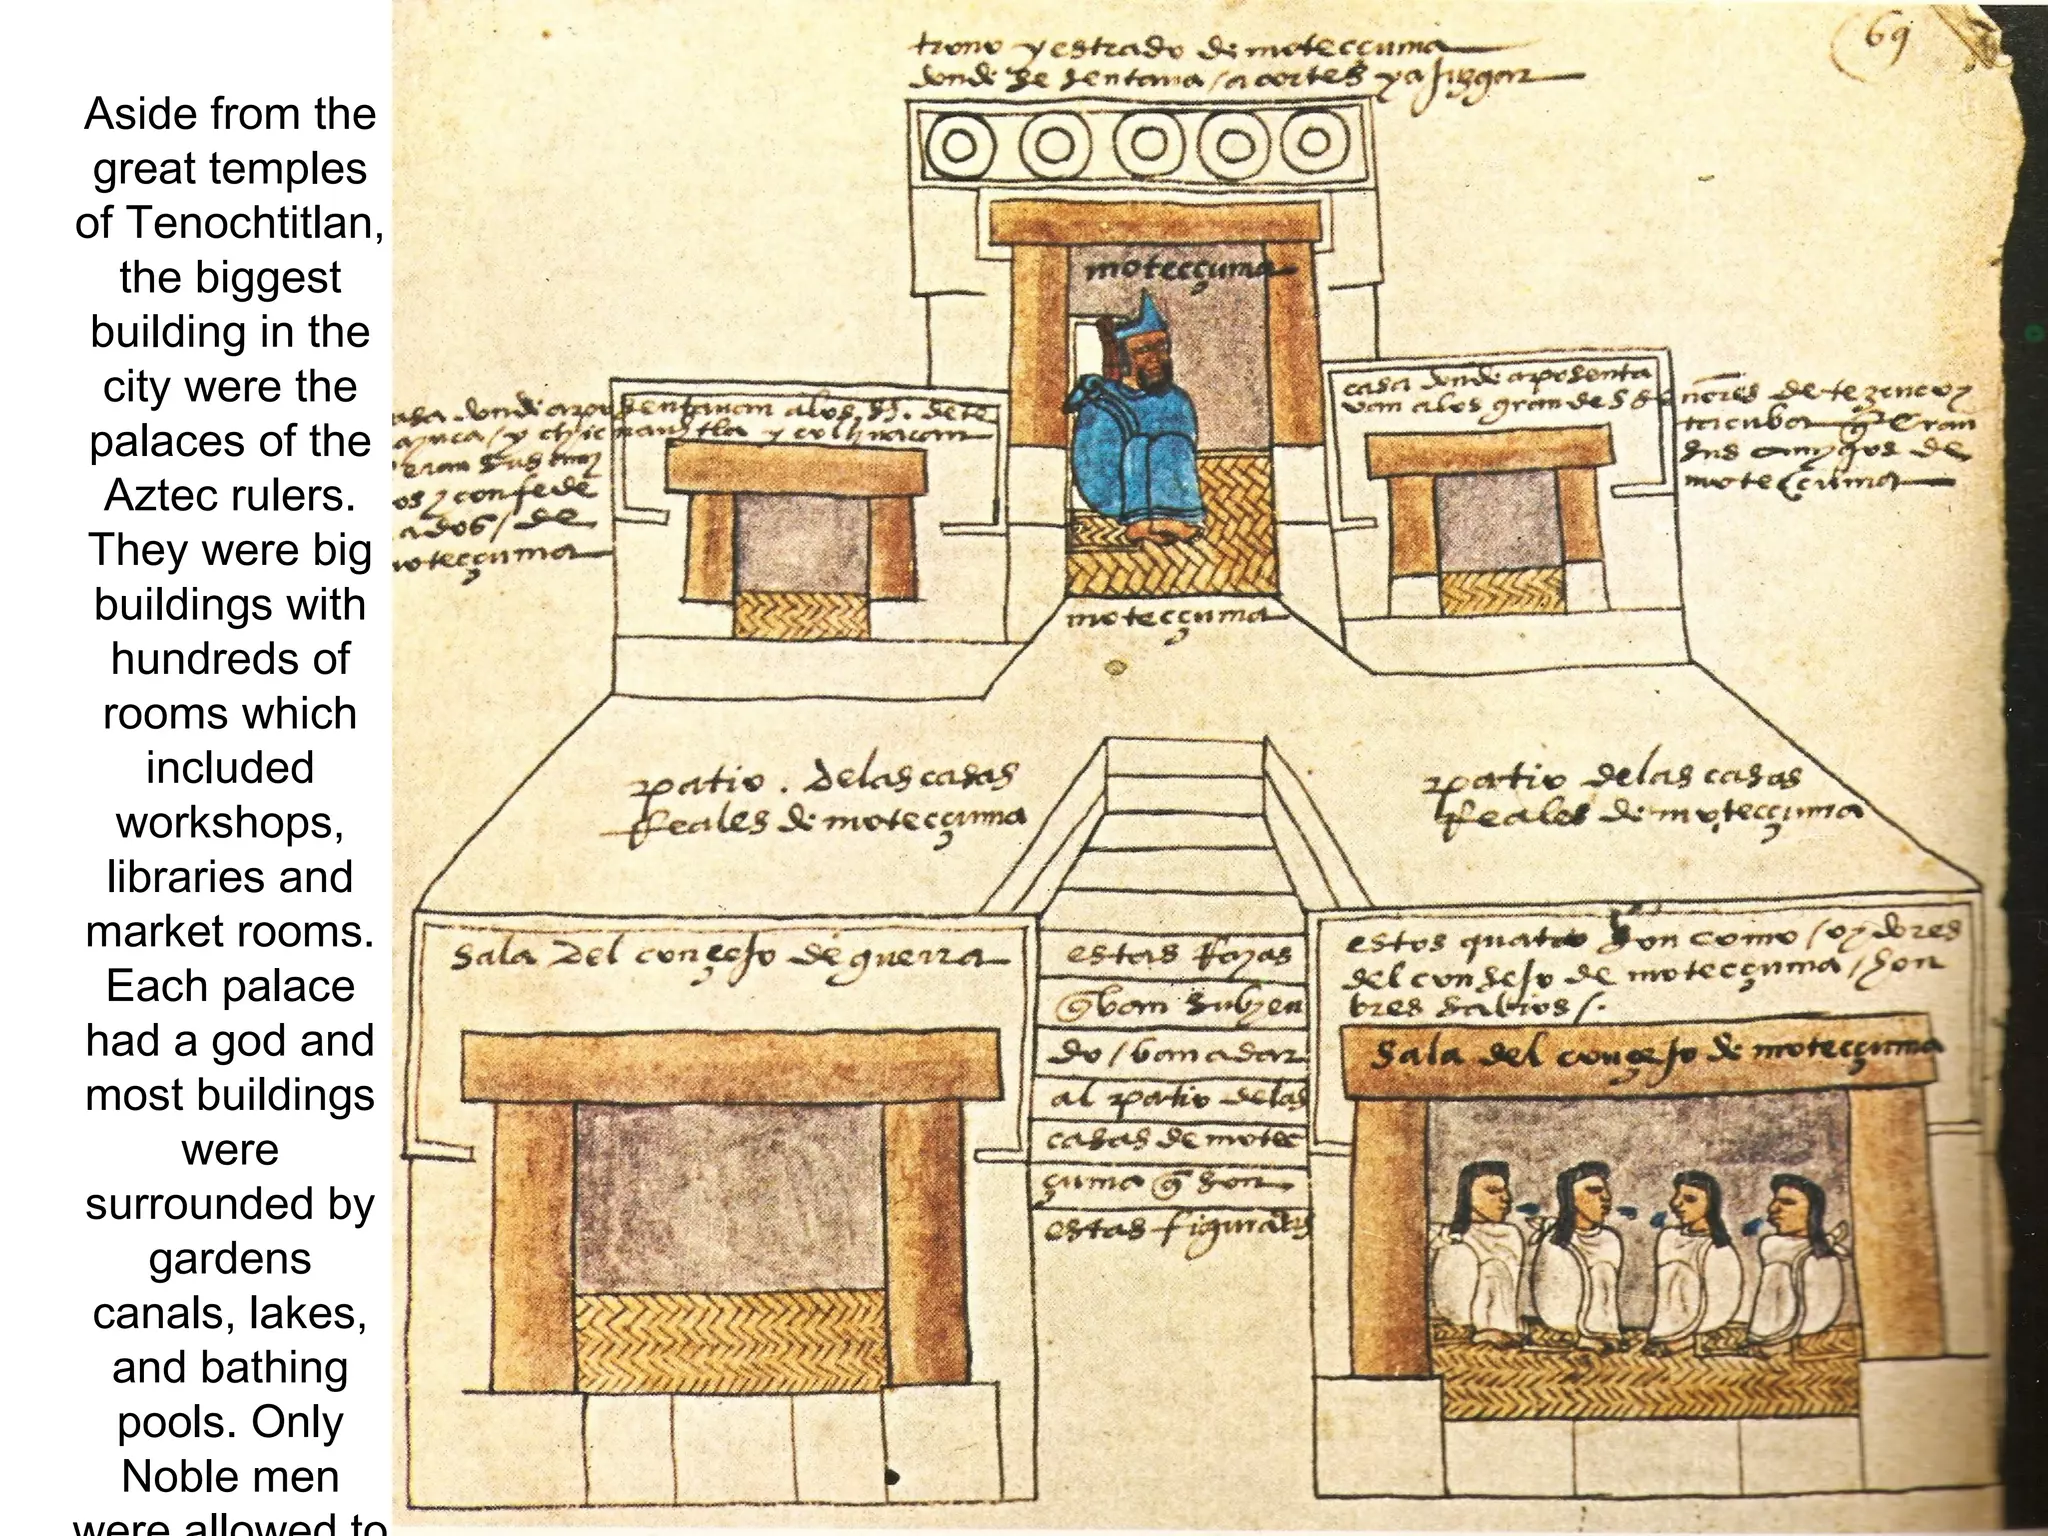 Aside from the
great temples
of Tenochtitlan,
the biggest
building in the
city were the
palaces of the
Aztec rulers.
They were big
buildings with
hundreds of
rooms which
included
workshops,
libraries and
market rooms.
Each palace
had a god and
most buildings
were
surrounded by
gardens
canals, lakes,
and bathing
pools. Only
Noble men
were allowed to
69
trono y estrado de moteccuma
donde se sentava / a cortes y a juzgar
moteccuma
casa donde aposentavan a los
y chicnauhtla y colhuacan
eran sus
os y confede
ados / de
moteccuma
casa donde aposenta
van a los grandes señores de tezcuco y
tacuba eran
sus amygos de
moteccuma
moteccuma
patio . de las casas
Reales de moteccuma
patio de las casas
Reales de moteccuma
sala del conçejo de guerra
estas Rayas
van subien
do / van a dar
al patio de las
casas de motec
çuma son
estas figuradas
estos quatro son como / oydores
del consejo de moteccuma / hon
bres sabios /.
Sala del conçejo de moteccuma